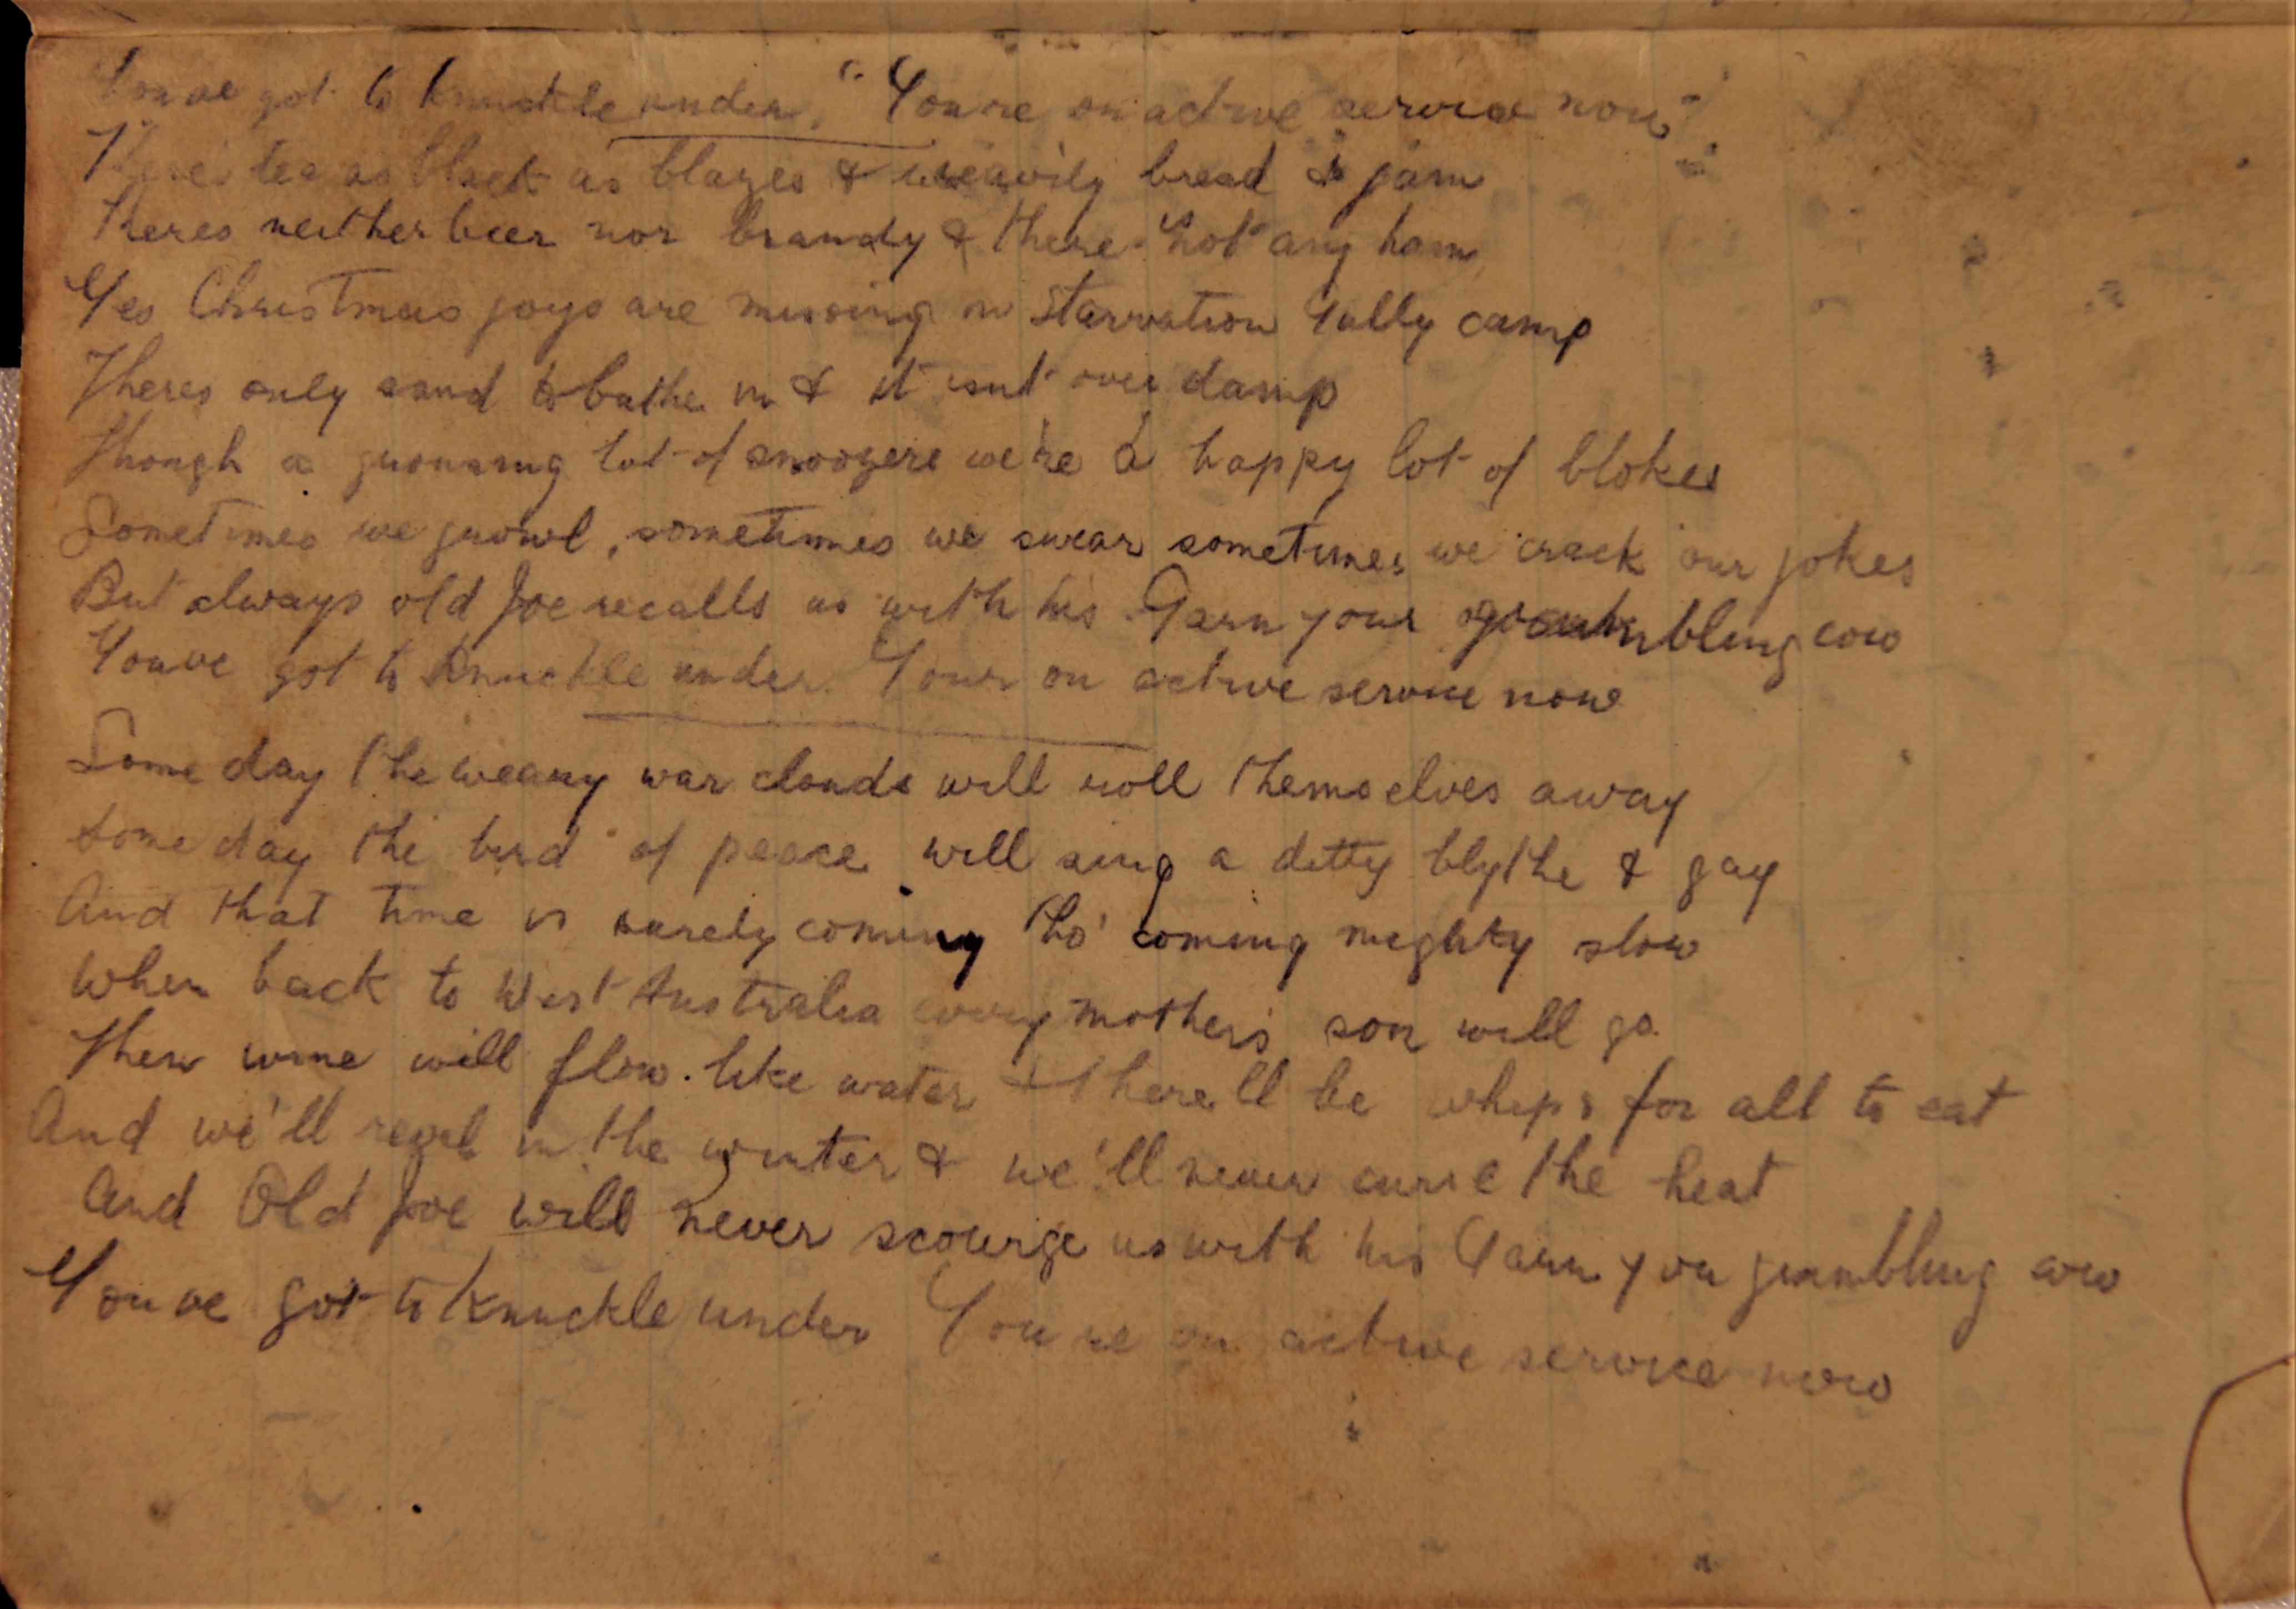 Youve got to knuckle under, "Youre on active service now"
There's tea as black as blazes & weavily bread & jam
Theres neither beer nor brandy & there not any ham
Yes Christmas joys are missing in Starvation Gully camp
Theres only sand to bathe in & it isnt over damp
Though a grousing lot of snoozers we're a happy lot of blokes
Sometimes we growl, sometimes we swear sometimes we crack our jokes
But always old Joe recalls us with his Garn your grumbling cow
Youve got to knuckle under. Your on active service now
Some day the weary war clouds will roll themselves away
Some day the bird of peace will sing a ditty blythe & gay
And that time is surely coming tho' coming mighty slow
When back to West Australia every mother's son will go.
Then wine will flow like water & therell be whips for all to eat
And we'll revel in the winter & we'll never curse the heat
And Old Joe will never scourge us with his Garn you grumbling cow
Youve got to knuckle under Youre on active service now